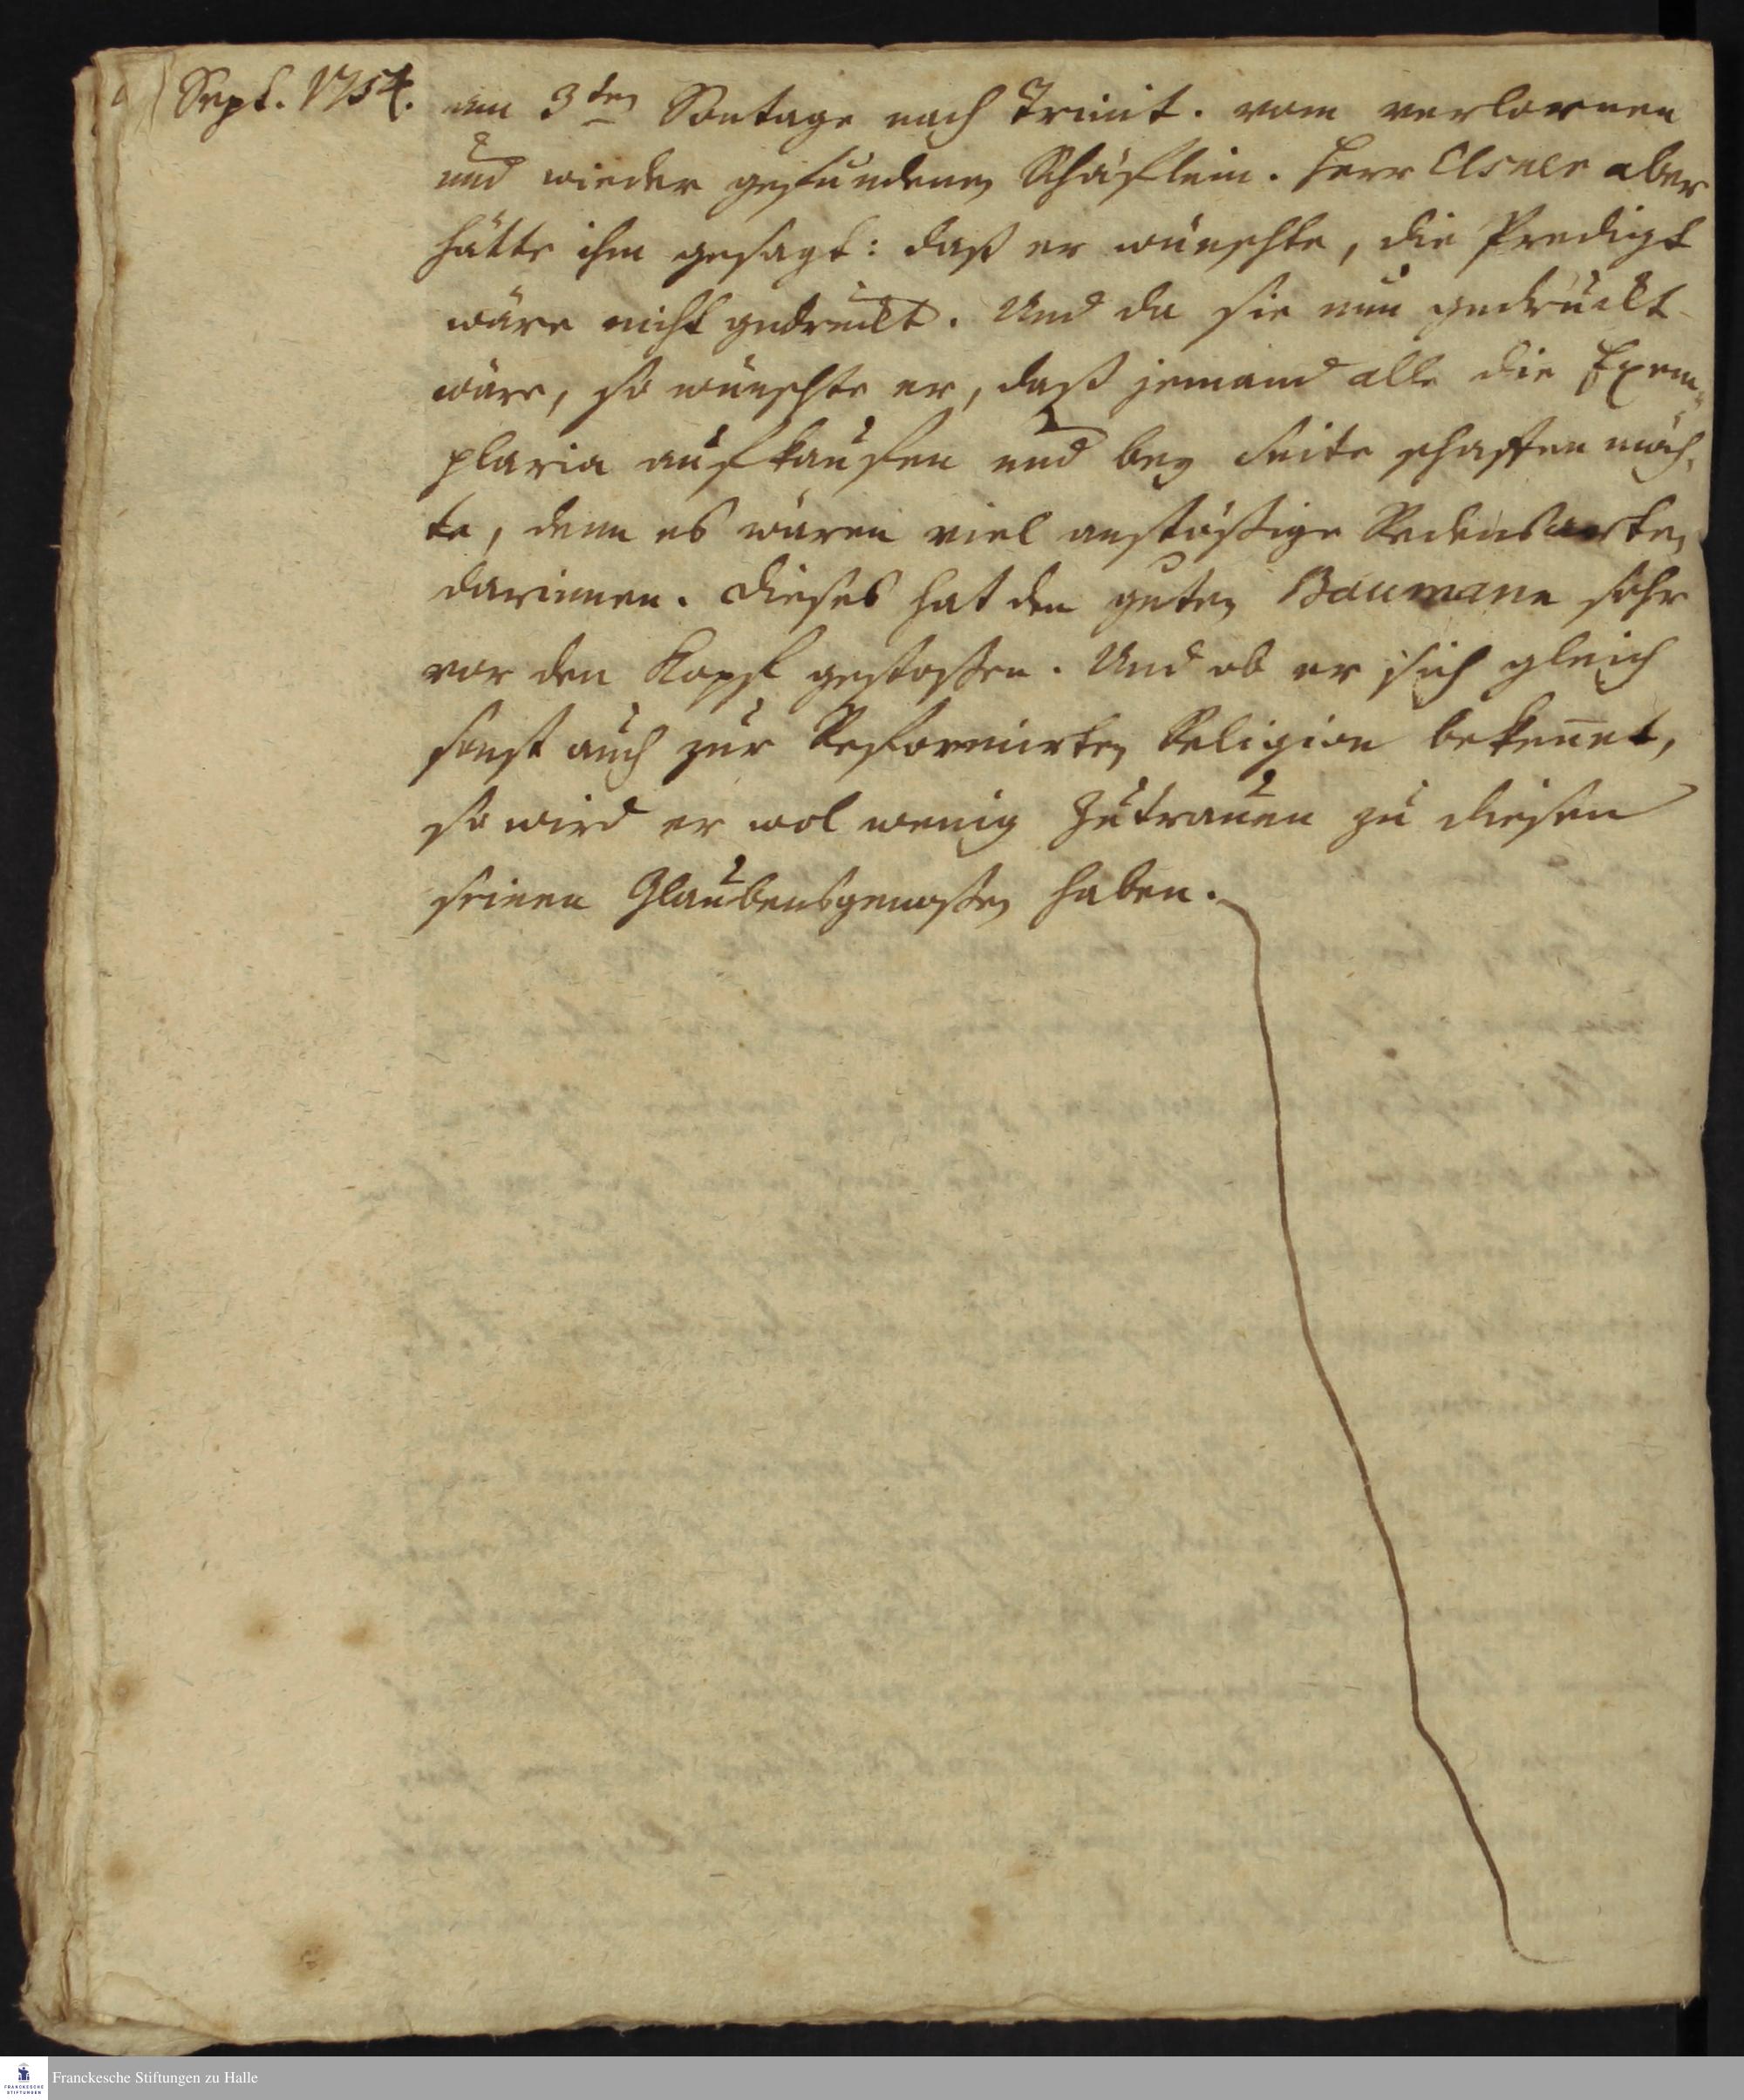 Sept. 1754.
am 3ten Sontage nach Trinit. vom verlornen
und wieder gefundenen Schäflein. Herr Elsner aber
hätte ihm gesagt: daß er wünschte, die Predigt
wäre nicht gedruckt. Und da sie nun gedruckt
wäre, so wünschte er, daß jemand alle die Exem-
plaria aufkaufen und bey Seite schaffen möch-
te, denn es wären viel anstößige Redensarten
darinnen. Dieses hat den guten Baumann sehr
vor den Kopf gestoßen. Und ob er sich gleich
sonst auch zur Reformirten Religion bekennet,
so wird er wol wenig Zutrauen zu diesen
seinen Glaubensgenossen haben.
FRANCKESCHE
STIFTUNGEN
Franckesche Stiftungen zu Halle